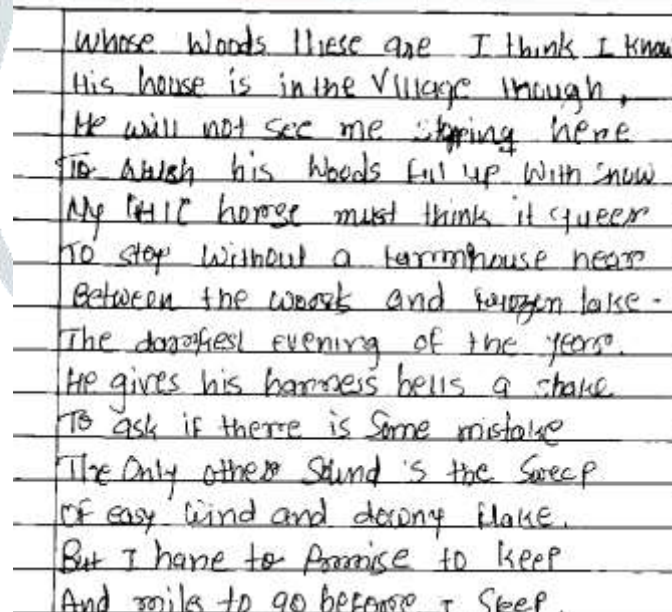 Whose Woods These are I think I know
His house is in the Village though,
He will not see me stopping here
To watch his Woods fill up With snow
My little horse must think it queer
To stop Without a farmhouse near
Between the woods and frozen lake-
The darkest evening of the year.
He gives his harness bells a shake
To ask if there is Some mistake
The Only other Sound is the Sweep
Of easy Wind and downy flake.
But I have to Promise to keep
And mile to go before I Sleep.